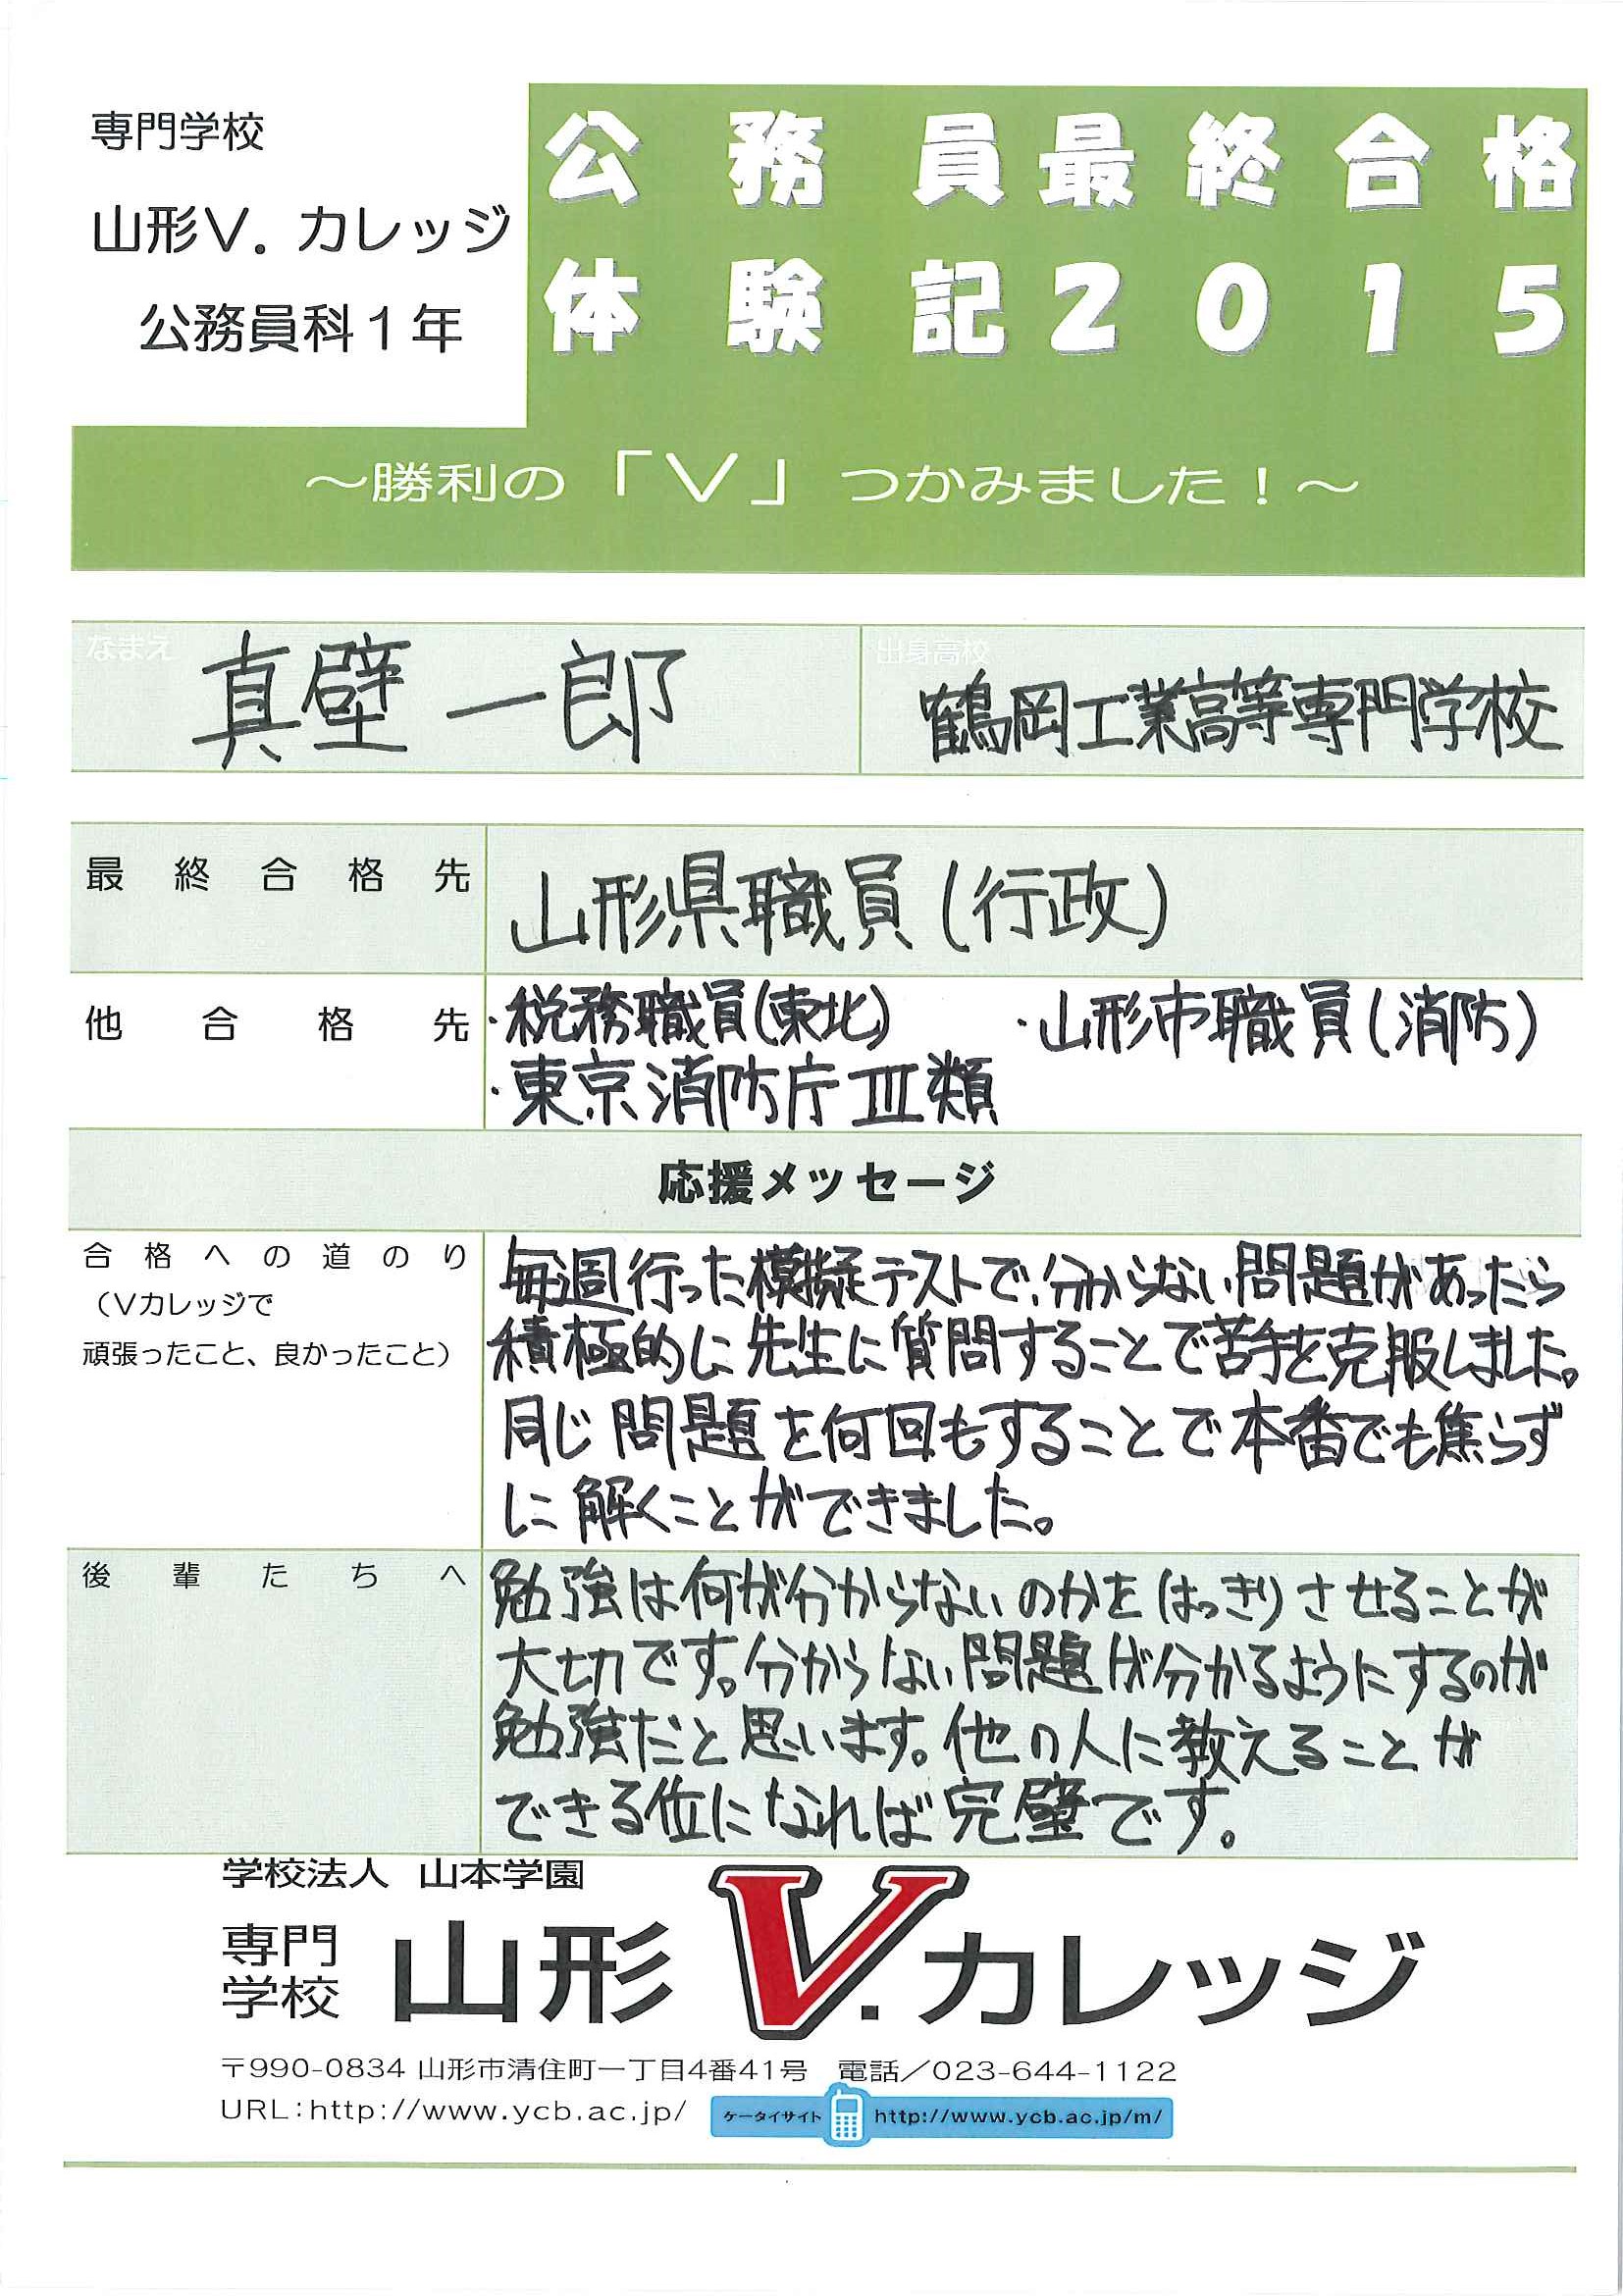 専門学校
山形V. カレッジ
公務員科1年
公務員最終合格
体験記2015
～勝利の「V」つかみました！～
なまえ
真壁 一郎
出身高校
鶴岡工業高等専門学校
最終合格先
山形県職員(行政)
他合格先
・税務職員(東北) ・山形市職員(消防)
・東京消防庁 Ⅲ類
応援メッセージ
合格への道のり
（Vカレッジで
頑張ったこと、良かったこと）
毎週行った模擬テストで、分からない問題があったら
積極的に先生に質問することで苦手を克服しました。
同じ問題を何回もすることで本番でも焦らず
に解くことができました。
後輩たちへ
勉強は何が分からないのかをはっきりさせることが
大切です。分からない問題が分かるようにするのが
勉強だと思います。他の人に教えることが
できる位になれば完璧です。
学校法人 山本学園
専門学校 山形V.カレッジ
〒990-0834 山形市清住町一丁目4番41号 電話／023-644-1122
URL：http://www.ycb.ac.jp/ ケータイサイト http://www.ycb.ac.jp/m/